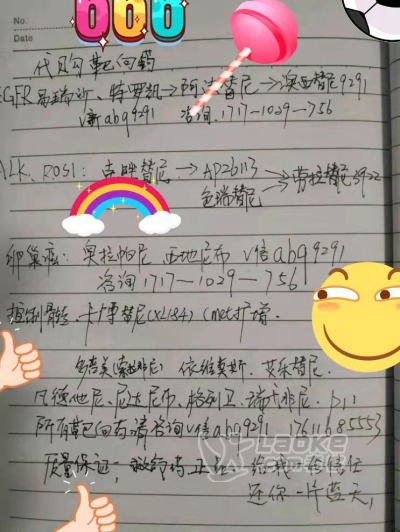 No.
Date
666
代购靶向药
EGFR 易瑞沙、特罗凯→阿法替尼→奥西替尼9291
v新abq9291 咨询1717-1029-756
ALK、ROS1: 克唑替尼→AP26113
色瑞替尼→劳拉替尼3922
卵巢癌: 奥拉帕尼 西地尼布 v信abq9291
咨询1717-1029-756
卡博替尼(XL184) (met扩增
多吉美(索拉非尼) 依维莫斯、艾乐替尼、
凡德他尼、尼达尼布、格列卫、瑞戈非尼、
所有靶向药请咨询v信abq9291 17611685553
质量保证, 给我一份信任
还你一片蓝天,
Laoke